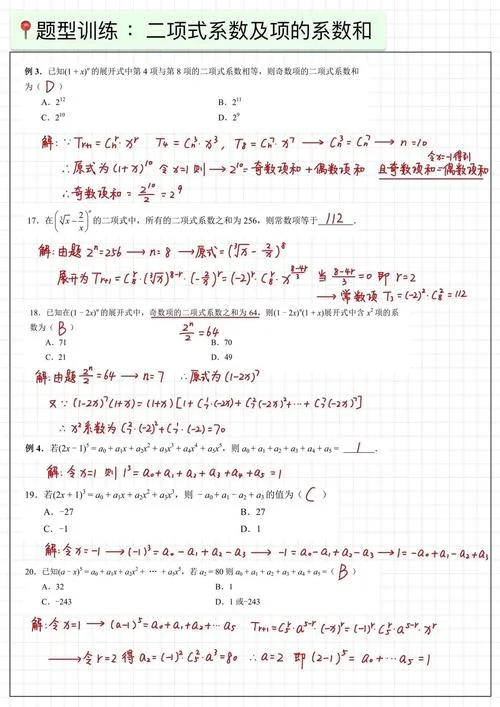 📍题型训练：二项式系数及项的系数和
例 3. 已知(1 + x)ⁿ 的展开式中第 4 项与第 8 项的二项式系数相等，则奇数项的二项式系数和
为（ D ）
A．2¹² B．2¹¹
C．2¹⁰ D．2⁹
解：∵ Tr+1 = Cₙʳ · xʳ T₄ = Cₙ³ · x³ , T₈ = Cₙ⁷ · x⁷ → Cₙ³ = Cₙ⁷ → n = 10
令x=-1得到
∴原式为(1+x)¹⁰ 令x=1则 → 2¹⁰ = 奇数项和 + 偶数项和 且奇数项和=偶数项和
∴奇数项和 = 2¹⁰/2 = 2⁹
17．在(∛x − 2/x)ⁿ的二项式中，所有的二项式系数之和为 256，则常数项等于 112 ．
解：由题 2ⁿ=256 → n=8 → 原式=(∛x − 2/x)⁸
展开为 Tr+1 = C₈ʳ·(∛x)⁸⁻ʳ·(−2/x)ʳ = (−2)ʳ·C₈ʳ·x^((8−4r)/3) 当 (8−4r)/3 = 0 即 r=2
→ 常数项 T₃ = (−2)²·C₈² = 112
18．已知在(1 − 2x)ⁿ 的展开式中，奇数项的二项式系数之和为 64，则(1 − 2x)ⁿ(1 + x)展开式中含 x² 项的系
数为（ B ） 2ⁿ/2 = 64
A．71 B．70
C．21 D．49
解：由题 2ⁿ/2 = 64 → n=7 ∴原式为 (1−2x)⁷
又∵ (1−2x)⁷(1+x) = (1+x)[1 + C₇¹·(−2x) + C₇²(−2x)² + ⋯ + C₇⁷(−2x)⁷]
∴ x²系数为 C₇²·(−2)² + C₇¹·(−2) = 70
例 4. 若(2x − 1)⁵ = a₀ + a₁x + a₂x² + a₃x³ + a₄x⁴ + a₅x⁵，则 a₀ + a₁ + a₂ + a₃ + a₄ + a₅ = 1 ．
解：令x=1 则 1⁵ = a₀ + a₁ + a₂ + a₃ + a₄ + a₅ = 1
19．若(2x + 1)³ = a₀ + a₁x + a₂x² + a₃x³，则 − a₀ + a₁ − a₂ + a₃ 的值为（ C ）
A．−27 B．27
C．−1 D．1
解：令x=−1 → (−1)³ = a₀ − a₁ + a₂ − a₃ → −1 = a₀ − a₁ + a₂ − a₃ → 1 = −a₀ + a₁ − a₂ + a₃
20．已知(a − x)⁵ = a₀ + a₁x + a₂x² + ⋯ + a₅x⁵，若 a₂ = 80 则 a₀ + a₁ + a₂ + a₃ + a₄ + a₅ =（ B ）
A．32 B．1
C．−243 D．1 或−243
解：令x=1 → (a−1)⁵ = a₀ + a₁ + a₂ + ⋯ a₅ Tr+1 = C₅ʳ·a⁵⁻ʳ·(−x)ʳ = (−1)ʳ·C₅ʳ·a⁵⁻ʳ·xʳ
→ 令r=2 得 a₂ = (−1)² C₅²·a³ = 80 ∴ a=2 即 (2−1)⁵ = a₀ + ⋯ a₅ = 1